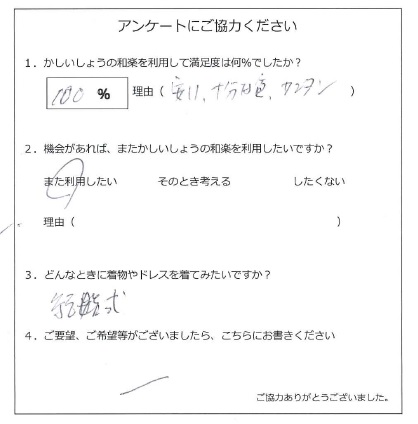 アンケートにご協力ください
1．かしいしょうの和楽を利用して満足度は何%でしたか？
100 % 理由（安い、十分対応、カンタン）
2．機会があれば、またかしいしょうの和楽を利用したいですか？
また利用したい そのとき考える したくない
理由（ ）
3．どんなときに着物やドレスを着てみたいですか？
結婚式
4．ご要望、ご希望等がございましたら、こちらにお書きください
ご協力ありがとうございました。